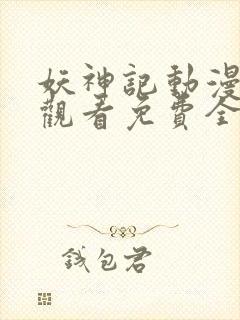 妖神記動漫
觀看免費全
錢包君